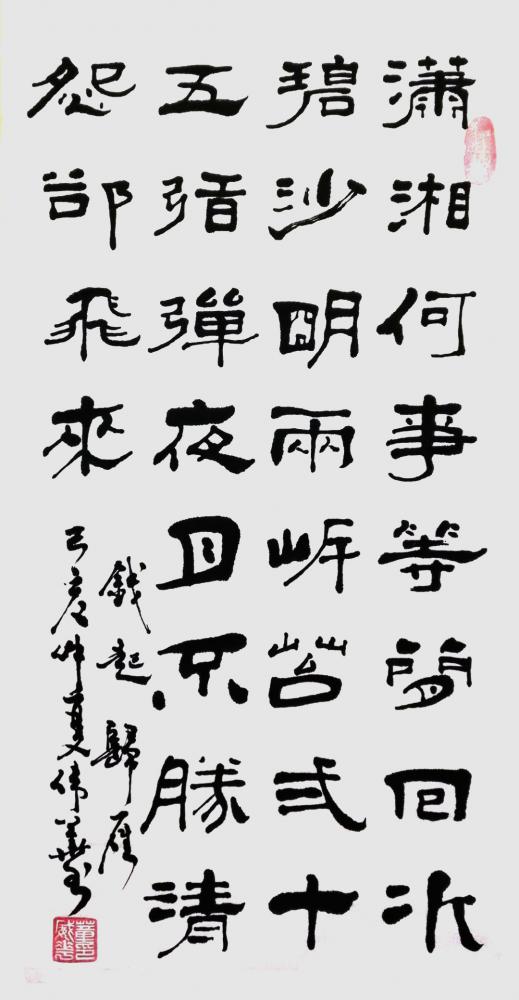 瀟湘何事等閒回水
碧沙明兩岸苔弍十
五弦彈夜月不勝清
怨卻飛來
錢起歸雁
己亥仲夏偉華書